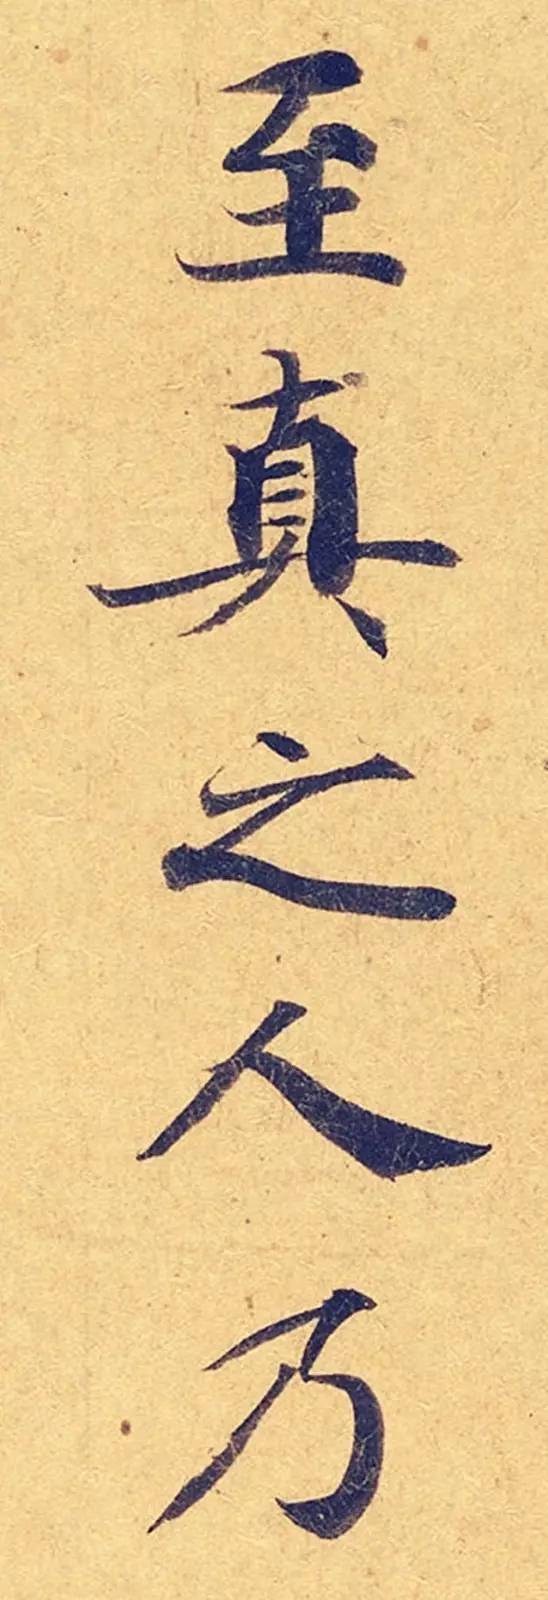 至真之人乃